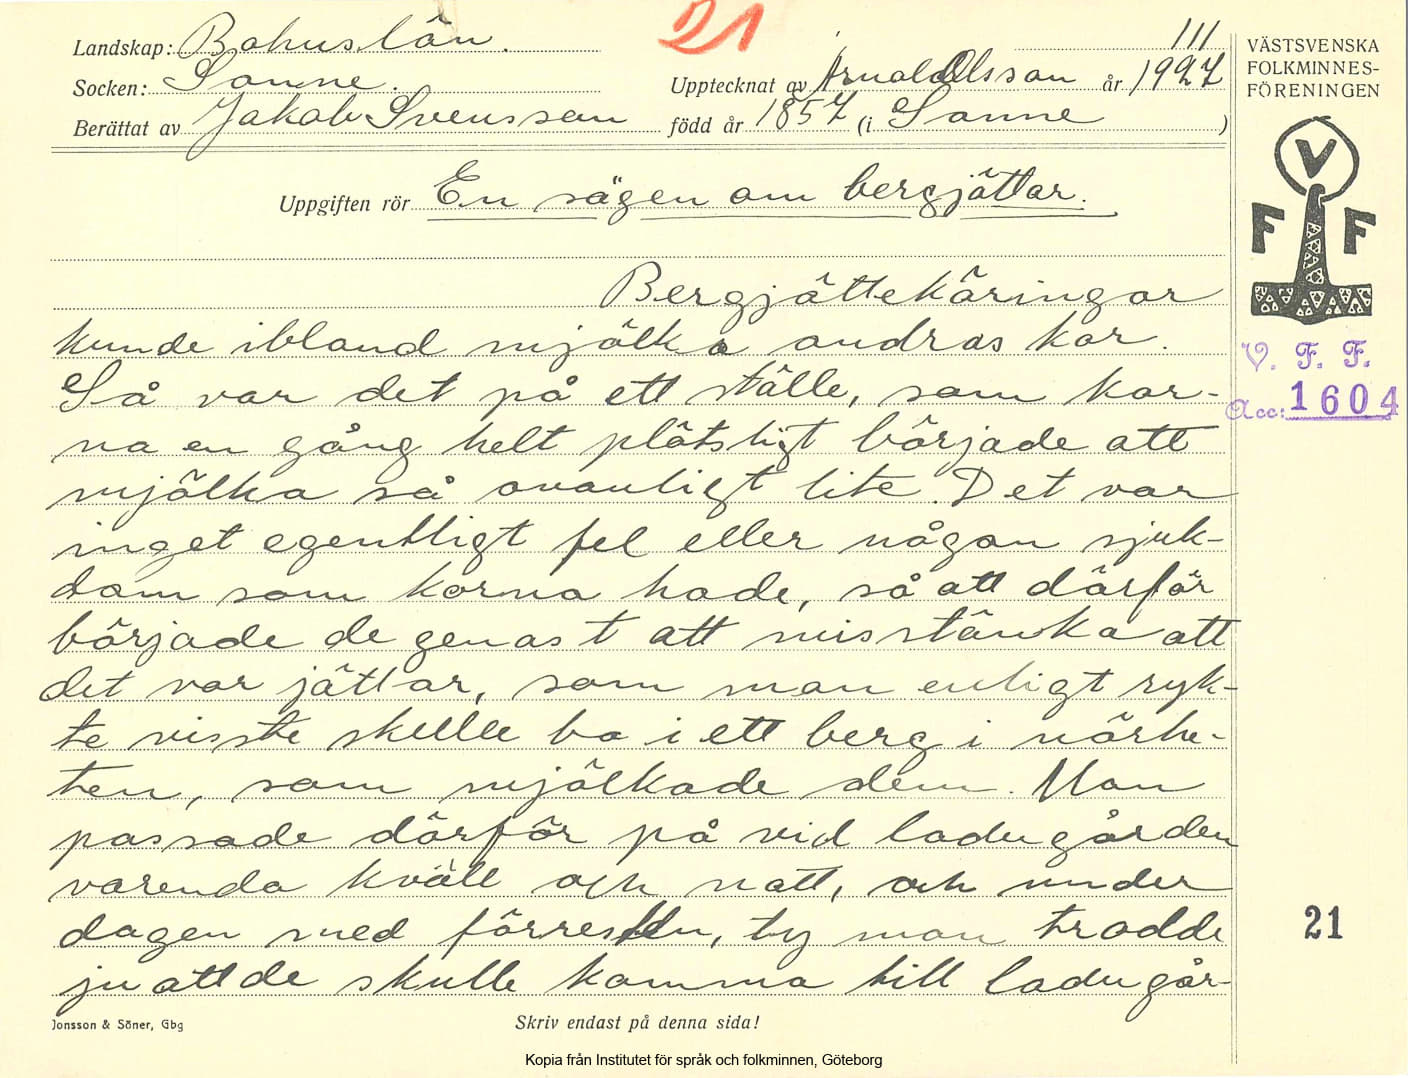 21
Landskap: Bohuslän. III
Socken: Sanne. Upptecknat av Arnold Olsson år 1927
Berättat av Jakob Svensson född år 1857 (i Sanne )
VÄSTSVENSKA
FOLKMINNES-
FÖRENINGEN
V
F F
V. F. F.
Acc: 1604
Uppgiften rör En sägen om bergjättar.
Bergjättekäringar
kunde ibland mjölka andras kor.
Så var det på ett ställe, som kor-
na en gång helt plötsligt började att
mjölka så ovanligt lite. Det var
inget egentligt fel eller någon sjuk-
dom som korna hade, så att därför
började de genast att misstänka att
det var jättar, som man enligt ryk-
te visste skulle bo i ett berg i närhe-
ten, som mjölkade dem. Man
passade därför på vid ladugården
varenda kväll och natt, och under
dagen med förresten, ty man trodde
ju att de skulle komma till ladugår-
21
Jonsson & Söner, Gbg
Skriv endast på denna sida!
Kopia från Institutet för språk och folkminnen, Göteborg